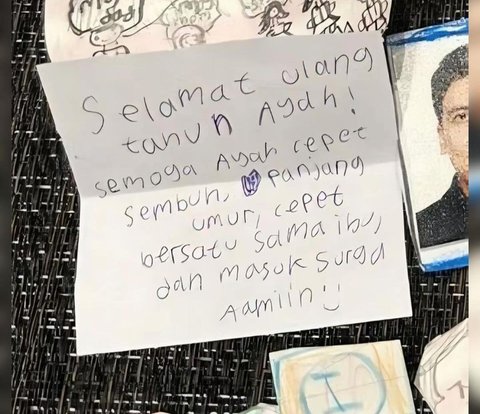 Selamat ulang
tahun Ayah!
semoga Ayah cepet
sembuh, panjang
umur, cepet
bersatu sama ibu,
dan masuk surga
Aamiin